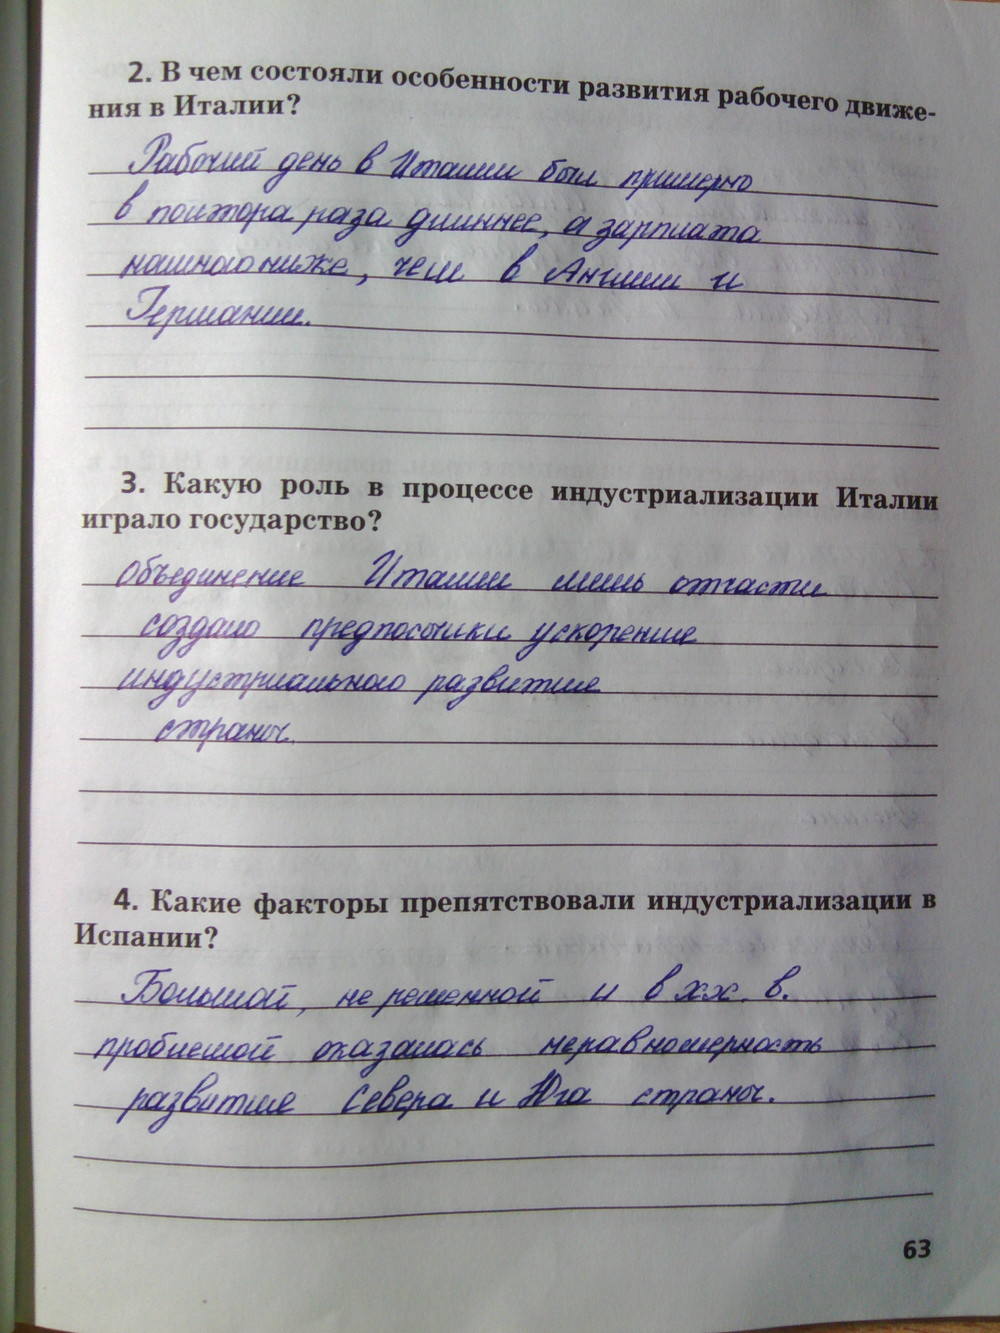 2. В чем состояли особенности развития рабочего движе-
ния в Италии?
Рабочий день в Италии был примерно
в полтора раза длиннее, а зарплата
намного ниже, чем в Англии и
Германии.
3. Какую роль в процессе индустриализации Италии
играло государство?
объединение Италии лишь отчасти
создало предпосылки ускорение
индустриального развитие
страны.
4. Какие факторы препятствовали индустриализации в
Испании?
Большой, не решенной и в хх. в.
проблемой оказалась неравномерность
развитие Севера и Юга страны.
63